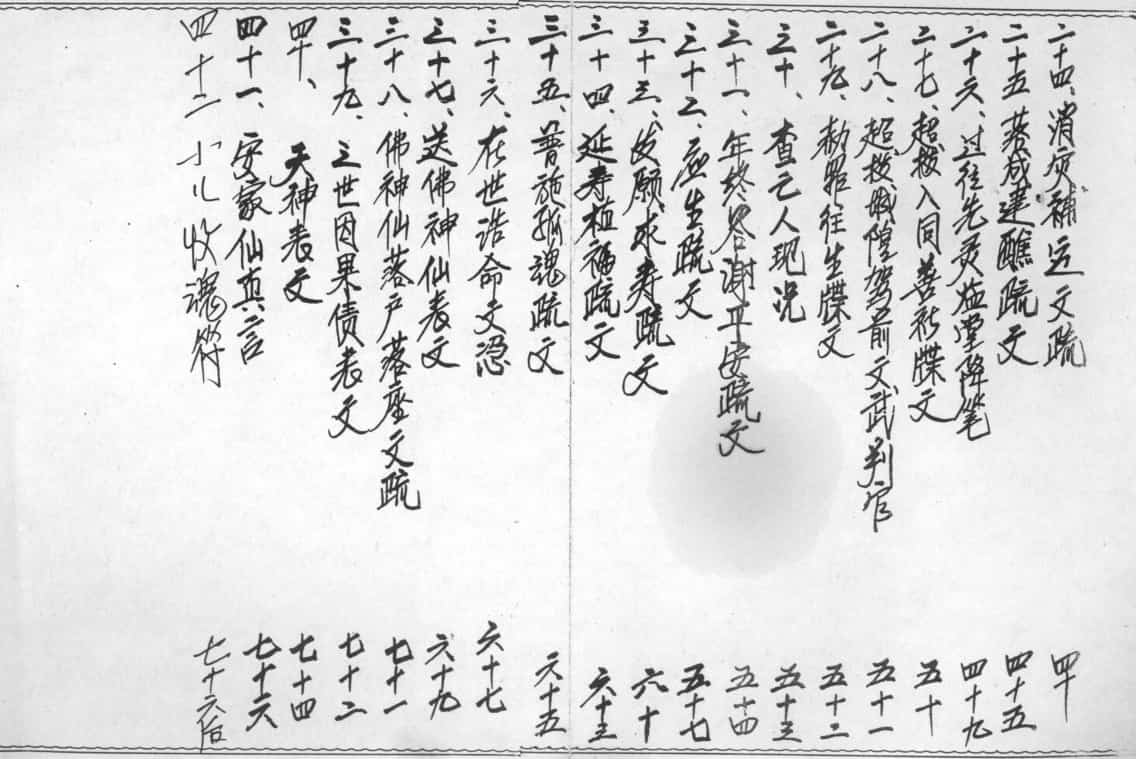 二十四、消灾补运文疏 四十
二十五、落成建醮疏文 四十五
二十六、过往先灵临堂降笔 四十九
二十七、超拔入同善社牒文 五十
二十八、超拔城隍驾前文武判官 五十一
二十九、敕照往生牒文 五十二
三十、查亡人现况 五十三
三十一、年终答谢平安疏文 五十四
三十二、应生疏文 五十七
三十三、发愿求寿疏文 六十
三十四、延寿植福疏文 六十三
三十五、普施孤魂疏文 六十五
三十六、在世诰命文 六十七
三十七、送佛神仙表文 六十九
三十八、佛神仙落户落座文疏 七十一
三十九、三世因果债表文 七十二
四十、天神表文 七十四
四十一、安家仙真言 七十六
四十二 小儿收魂符 七十六后